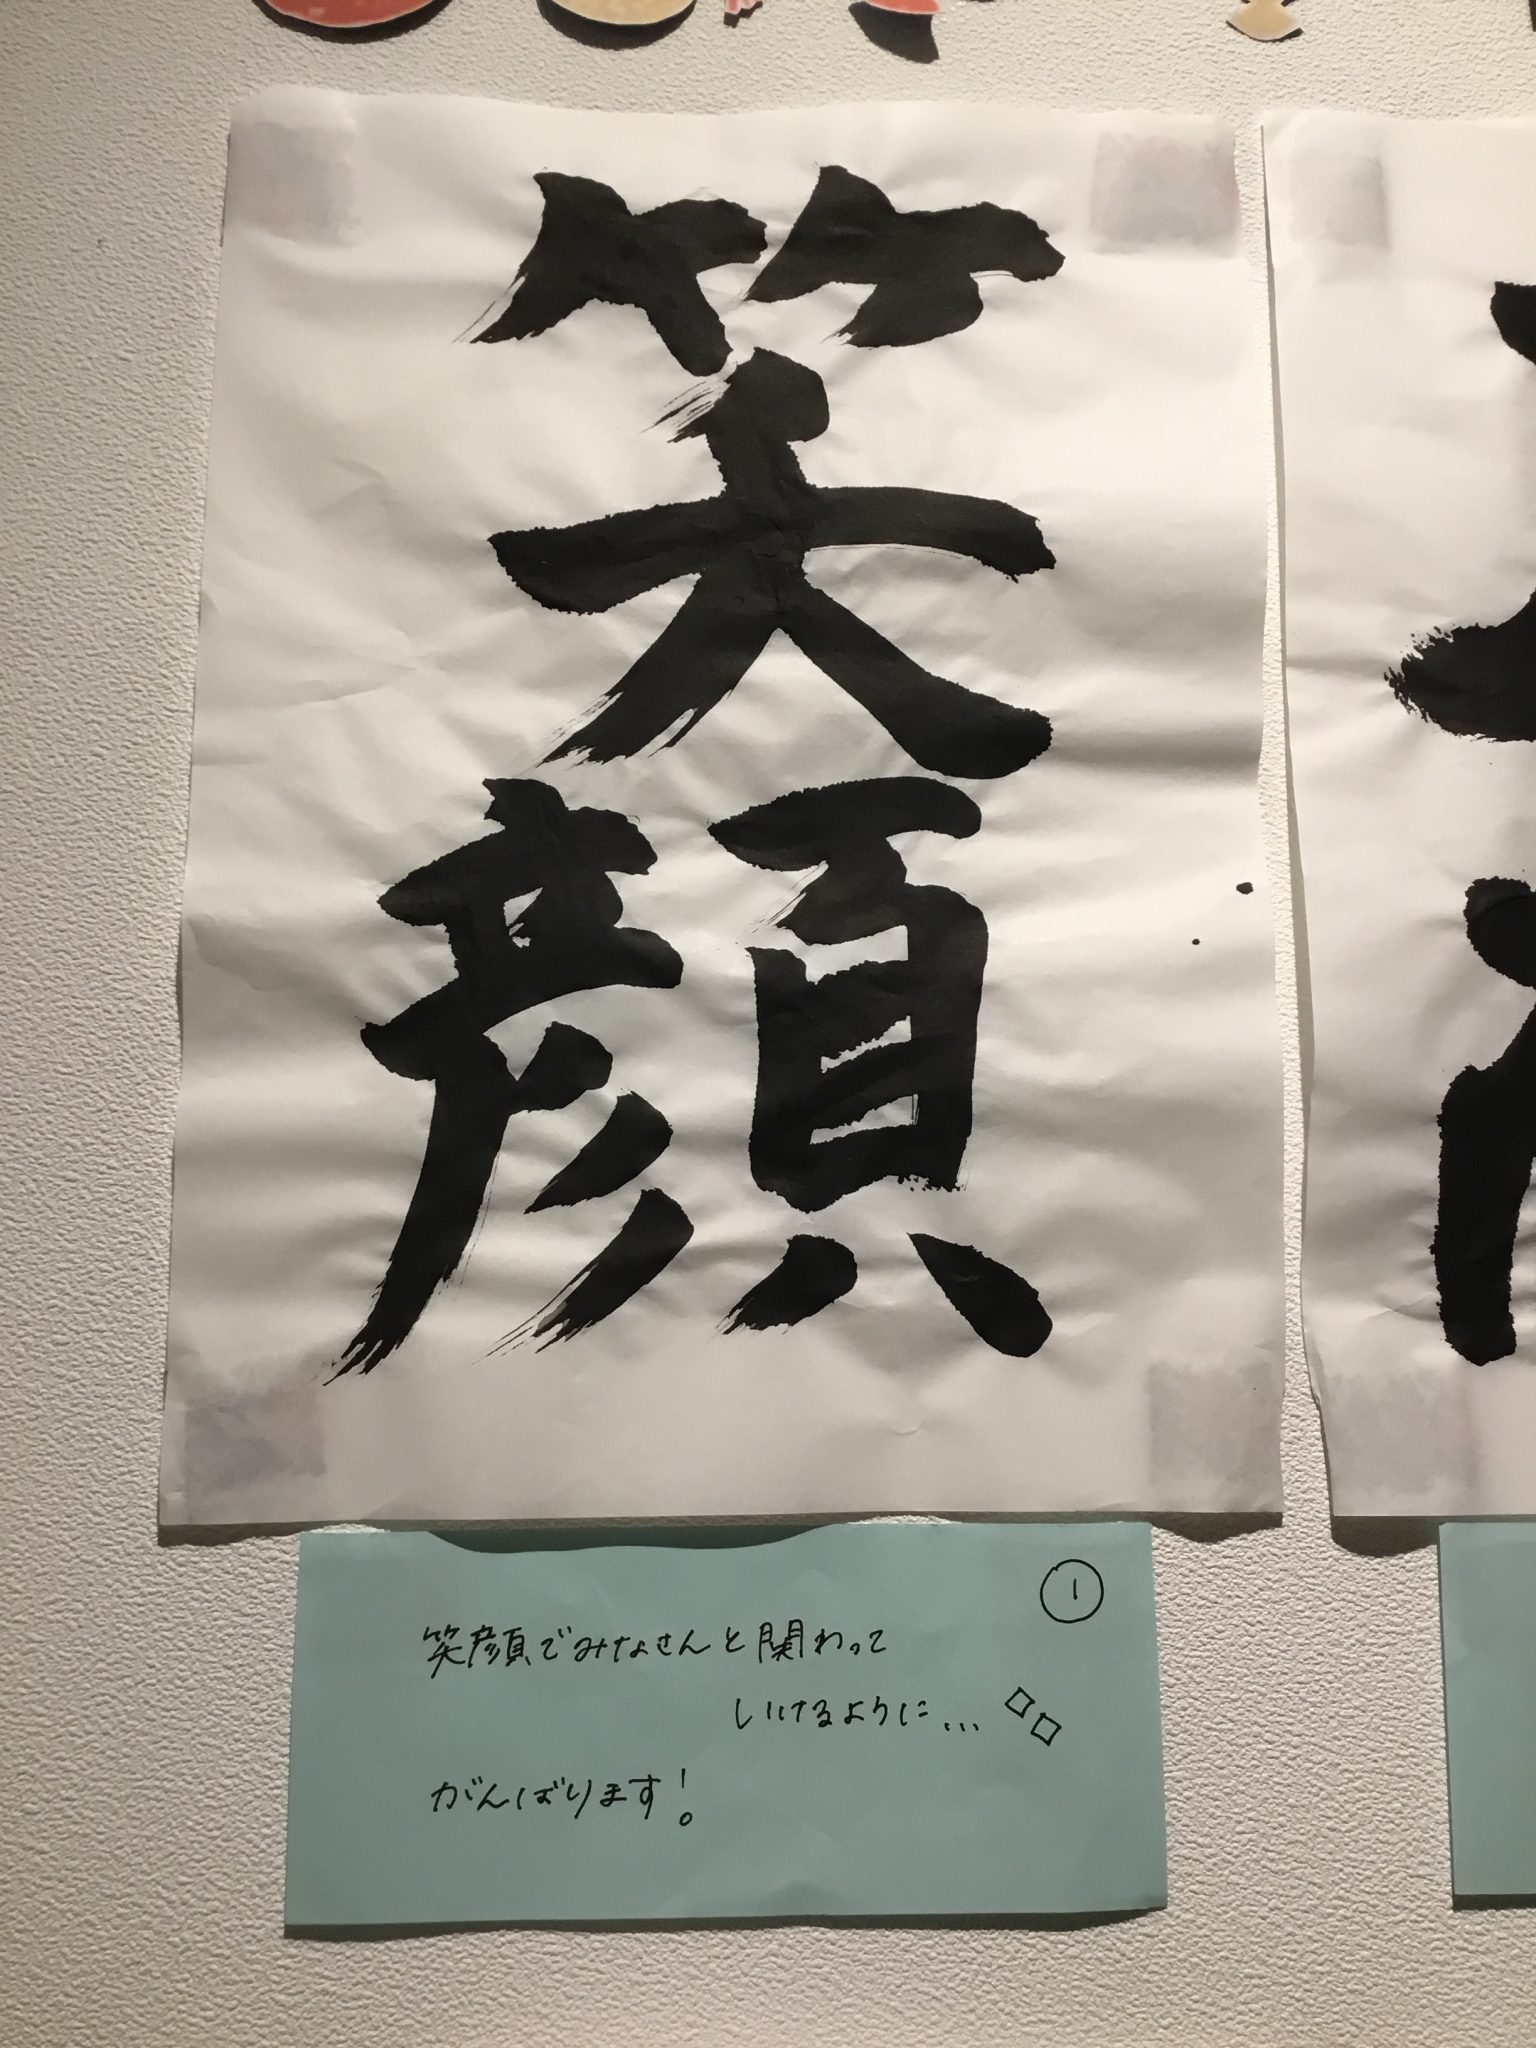 笑顔
①
笑顔でみなさんと関わって
いけるように...
がんばります!